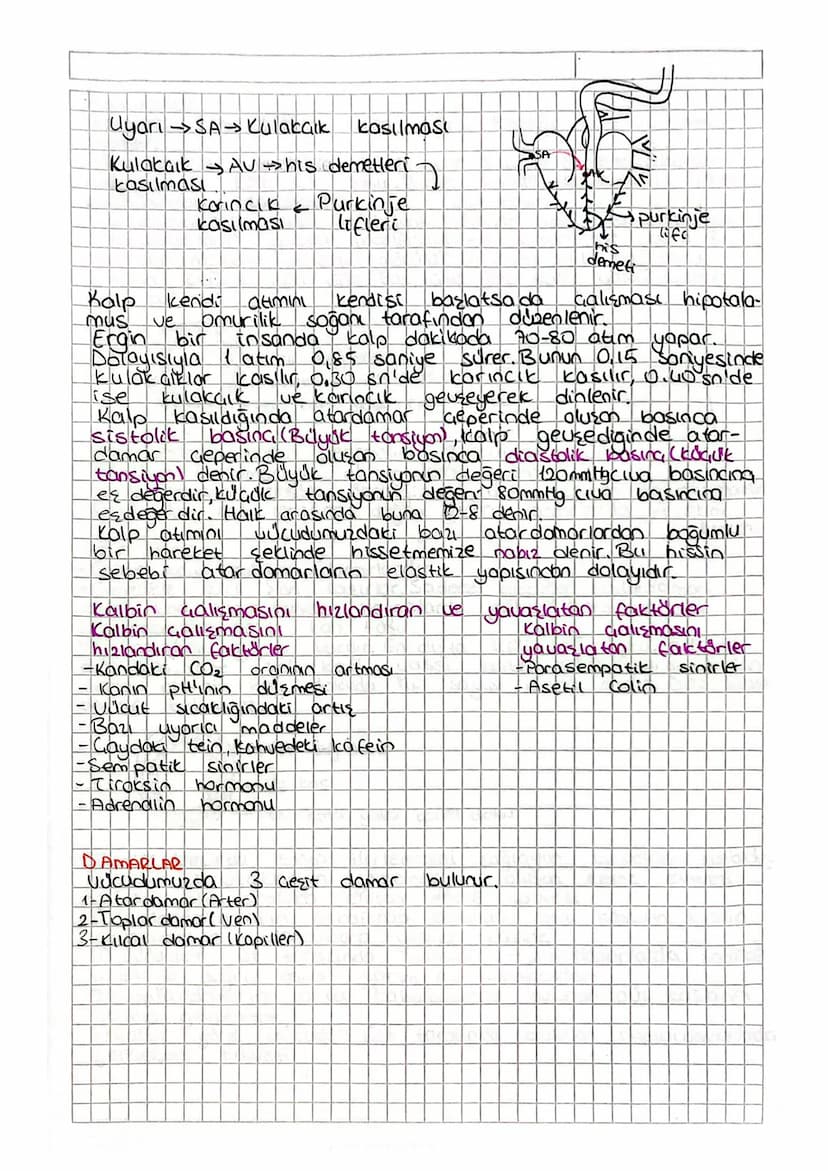 Uyarı → SA → Kulakcık kasılması
Kulakcık → AV → his demetleri
kasılması
Karıncık ← Purkinje
kasılması lifleri
SA
AV
purkinje
lifi
his
demeti
Kalp kendi atımını kendisi başlatsada çalışması hipotala-
mus ve omurilik soğanı tarafından düzenlenir.
Ergin bir insanda kalp dakikada 70-80 atım yapar.
Dolayısıyla 1 atım 0,85 saniye sürer. Bunun 0,15 saniyesinde
kulakcıklar kasılır, 0.30 sn'de karıncık kasılır, 0.40 sn'de
ise kulakcık ve karıncık gevşeyerek dinlenir.
Kalp kasıldığında atardamar çeperinde oluşan basınca
sistolik basıncı (Büyük tansiyon), kalp gevşediğinde atar-
damar çeperinde oluşan basınca diastolik basınç (küçük
tansiyon) denir. Büyük tansiyonun değeri 120mmHg cıva basıncına
eş değerdir, küçük tansiyonun değeri 80mmHg cıva basıncına
eşdeğerdir. Halk arasında buna 12-8 denir.
Kalp atımını vücudumuzdaki bazı atardamarlardan boğumlu
bir hareket şeklinde hissetmemize nabız denir. Bu hissin
sebebi atardamarların elastik yapısından dolayıdır.
Kalbin çalışmasını hızlandıran ve yavaşlatan faktörler
Kalbin çalışmasını Kalbin çalışmasını
hızlandıran faktörler yavaşlatan faktörler
-Kandaki CO₂ oranının artması -Parasempatik sinirler
- Kanın pH'ının düşmesi - Asetil Colin
- Vücut sıcaklığındaki artış
-Bazı uyarıcı maddeler
-Çaydaki tein, kahvedeki kafein
-Sempatik sinirler
- Tiroksin hormonu
- Adrenalin hormonu
DAMARLAR
Vücudumuzda 3 çeşit damar bulunur.
1-Atardamar (Arter)
2-Toplardamar (Ven)
3-Kılcal damar (Kapiller)